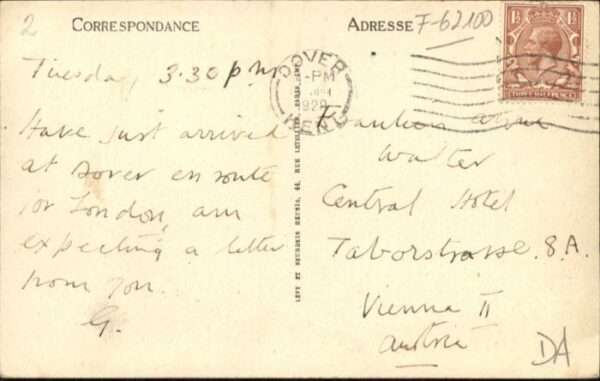 2
CORRESPONDANCE
ADRESSE
F-62100
Tuesday, 3.30 pm
Have just arrived
at Dover en route
for London, am
expecting a letter
from you.
G.
DOVER
PM
KENT
LEVY ET NEURDEIN RÉUNIS, 44, RUE LETELLIER, PARIS
Fraulein
Walter
Central Hotel
Taborstrasse. 8.A.
Vienna II
Austria
DA